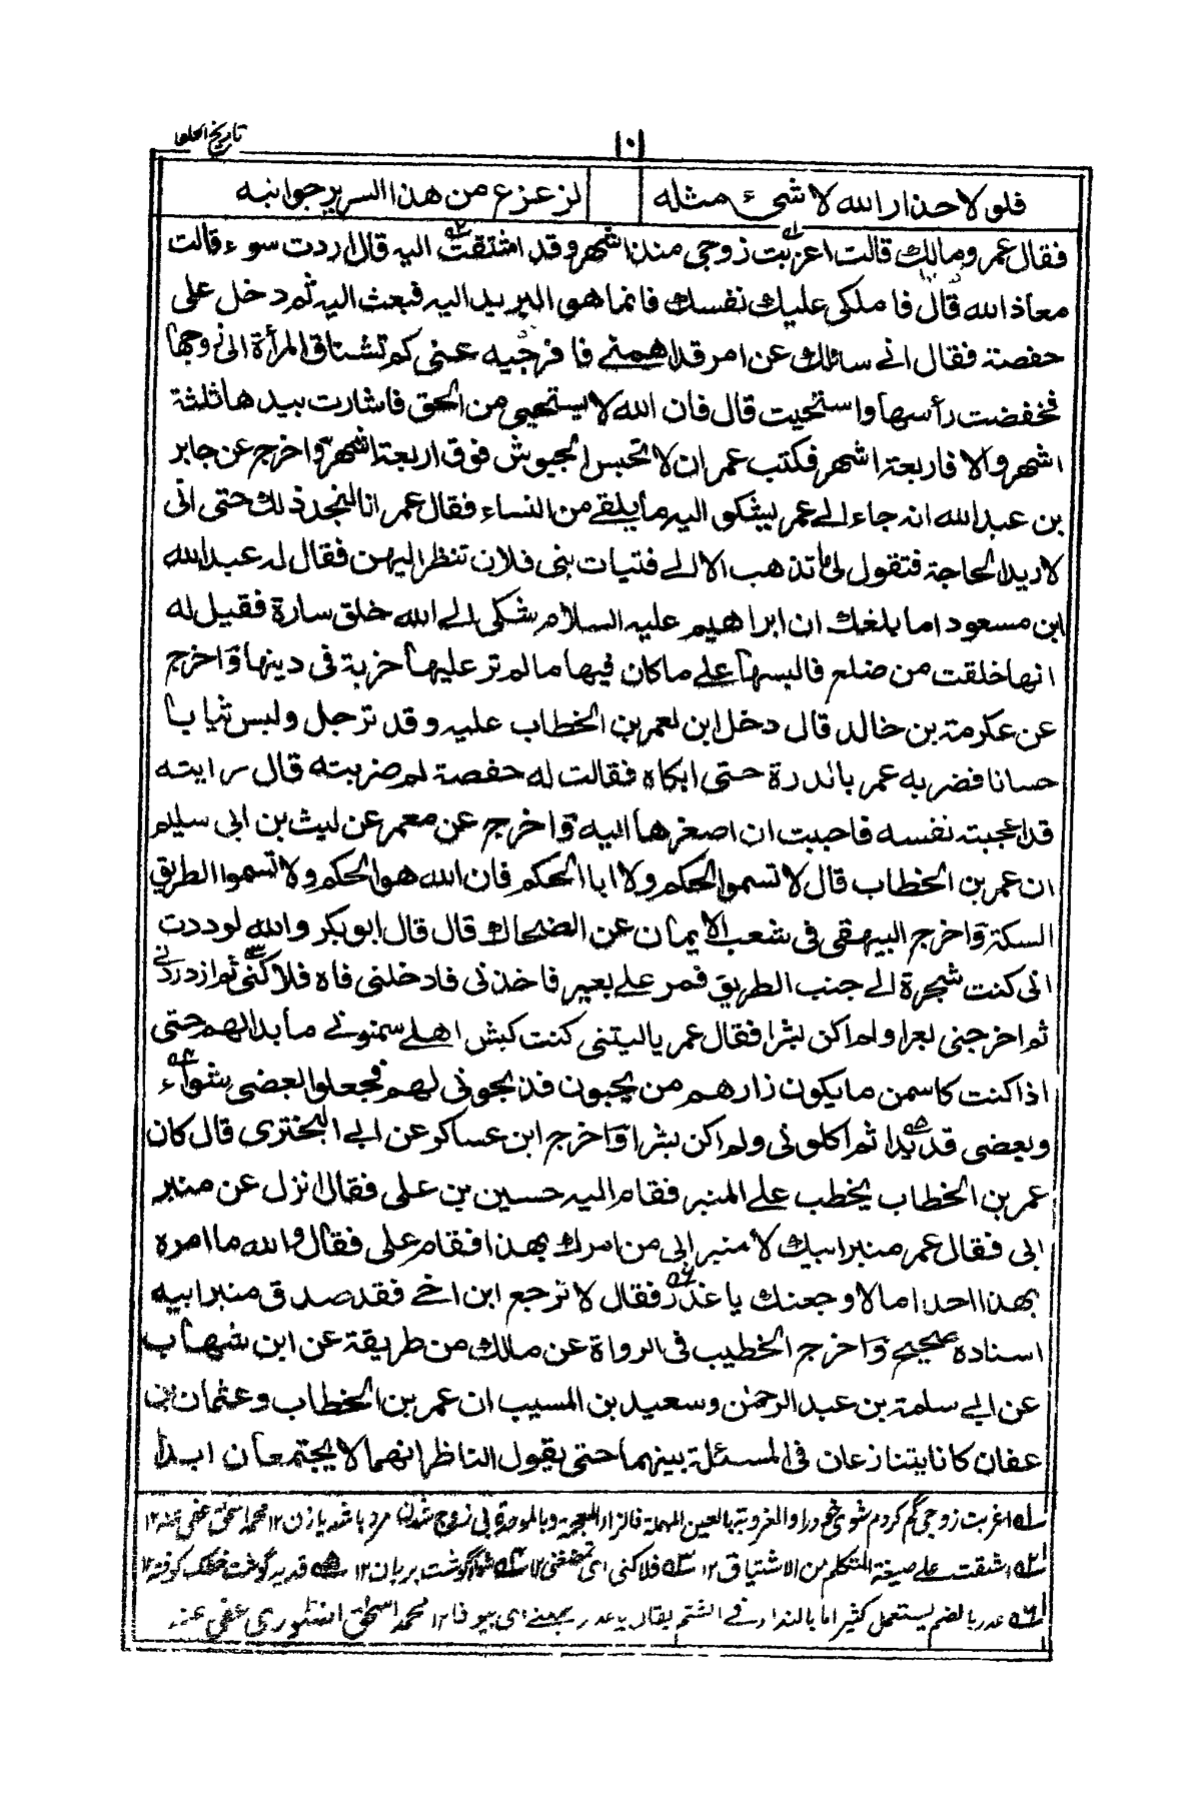 تاريخ الخلفا
١٠١
فلولا حذار الله لا شئ مثله لزعزع من هذا السرير جوانبه
فقال عمر ومالك قالت اعزبت زوجي منذ اشهر وقد اشتقت اليه قال اردت سوء قالت
معاذ الله قال فاملكى عليك نفسك فانما هو البريد اليه فبعث اليه ثم دخل على
حفصة فقال انى سائلك عن امر قد اهمنى فافرجيه عنى كم تشتاق المرأة الى زوجها
فخفضت رأسها واستحيت قال فان الله لا يستحيى من الحق فاشارت بيدها ثلثة
اشهر والا فاربعة اشهر فكتب عمر ان لا تحبس الجيوش فوق اربعة اشهر واخرج عن جابر
بن عبد الله انه جاء الى عمر يشكو اليه ما يلقى من النساء فقال عمر انا لنجد ذلك حتى انى
لاريد الحاجة فتقول لى ما تذهب الا الى فتيات بنى فلان تنظر اليهن فقال له عبد الله
ابن مسعود اما بلغك ان ابراهيم عليه السلام شكى الى الله خلق سارة فقيل له
انها خلقت من ضلع فالبسها على ما كان فيها ما لم تر عليها خربة فى دينها واخرج
عن عكرمة بن خالد قال دخل ابن لعمر بن الخطاب عليه وقد ترجل ولبس ثيابا
حسانا فضربه عمر بالدرة حتى ابكاه فقالت له حفصة لم ضربته قال رايته
قد اعجبته نفسه فاحببت ان اصغرها اليه واخرج عن معمر عن ليث بن ابى سليم
ان عمر بن الخطاب قال لا تسموا الحكم ولا ابا الحكم فان الله هو الحكم ولا تسموا الطريق
السكة واخرج البيهقى فى شعب الايمان عن الضحاك قال قال ابو بكر والله لوددت
انى كنت شجرة الى جنب الطريق فمر على بعير فاخذنى فادخلنى فاه فلاكنى ثم ازدردنى
ثم اخرجنى بعرا ولم اكن بشرا فقال عمر ياليتنى كنت كبش اهلى سمنونى ما بدا لهم حتى
اذا كنت كاسمن ما يكون زارهم من يحبون فذبحونى لهم فجعلوا بعضى شواء
وبعضى قديدا ثم اكلونى ولم اكن بشرا واخرج ابن عساكر عن ابى البخترى قال كان
عمر بن الخطاب يخطب على المنبر فقام اليه حسين بن على فقال انزل عن منبر
ابى فقال عمر منبر ابيك لا منبر ابى من امرك بهذا فقام على فقال والله ما امره
بهذا احد اما لاوجعنك يا غدر فقال لا توجع ابن اخى فقد صدق منبر ابيه
اسناده صحيح واخرج الخطيب فى الرواة عن مالك من طريقة عن ابن شهاب
عن ابى سلمة بن عبد الرحمن وسعيد بن المسيب ان عمر بن الخطاب وعثمان بن
عفان كانا يتنازعان فى المسئلة بينهما حتى يقول الناظر انهما لا يجتمعان ابدا
له اغربت زوجى گم كردم شوى خود را و الغروبة بالعين المهملة فالزاء المعجمة وبالموحدة بى زوج شدن مرد باشد يا زن ١٢ محمد اسحق عفى عنه ١٢
اشتقت على صيغة المتكلم من الاشتياق ١٢ فلاكنى اى مضغنى ١٢ شواء گوشت بريان ١٢ قديد گوشت خشك كوفته ١٢
غدر بالضم يستعمل كثيرا ما بالنداء فى الشتم يقال يا غدر بمعنے اى بيوفا ١٢ محمد اسحق عفى عنه